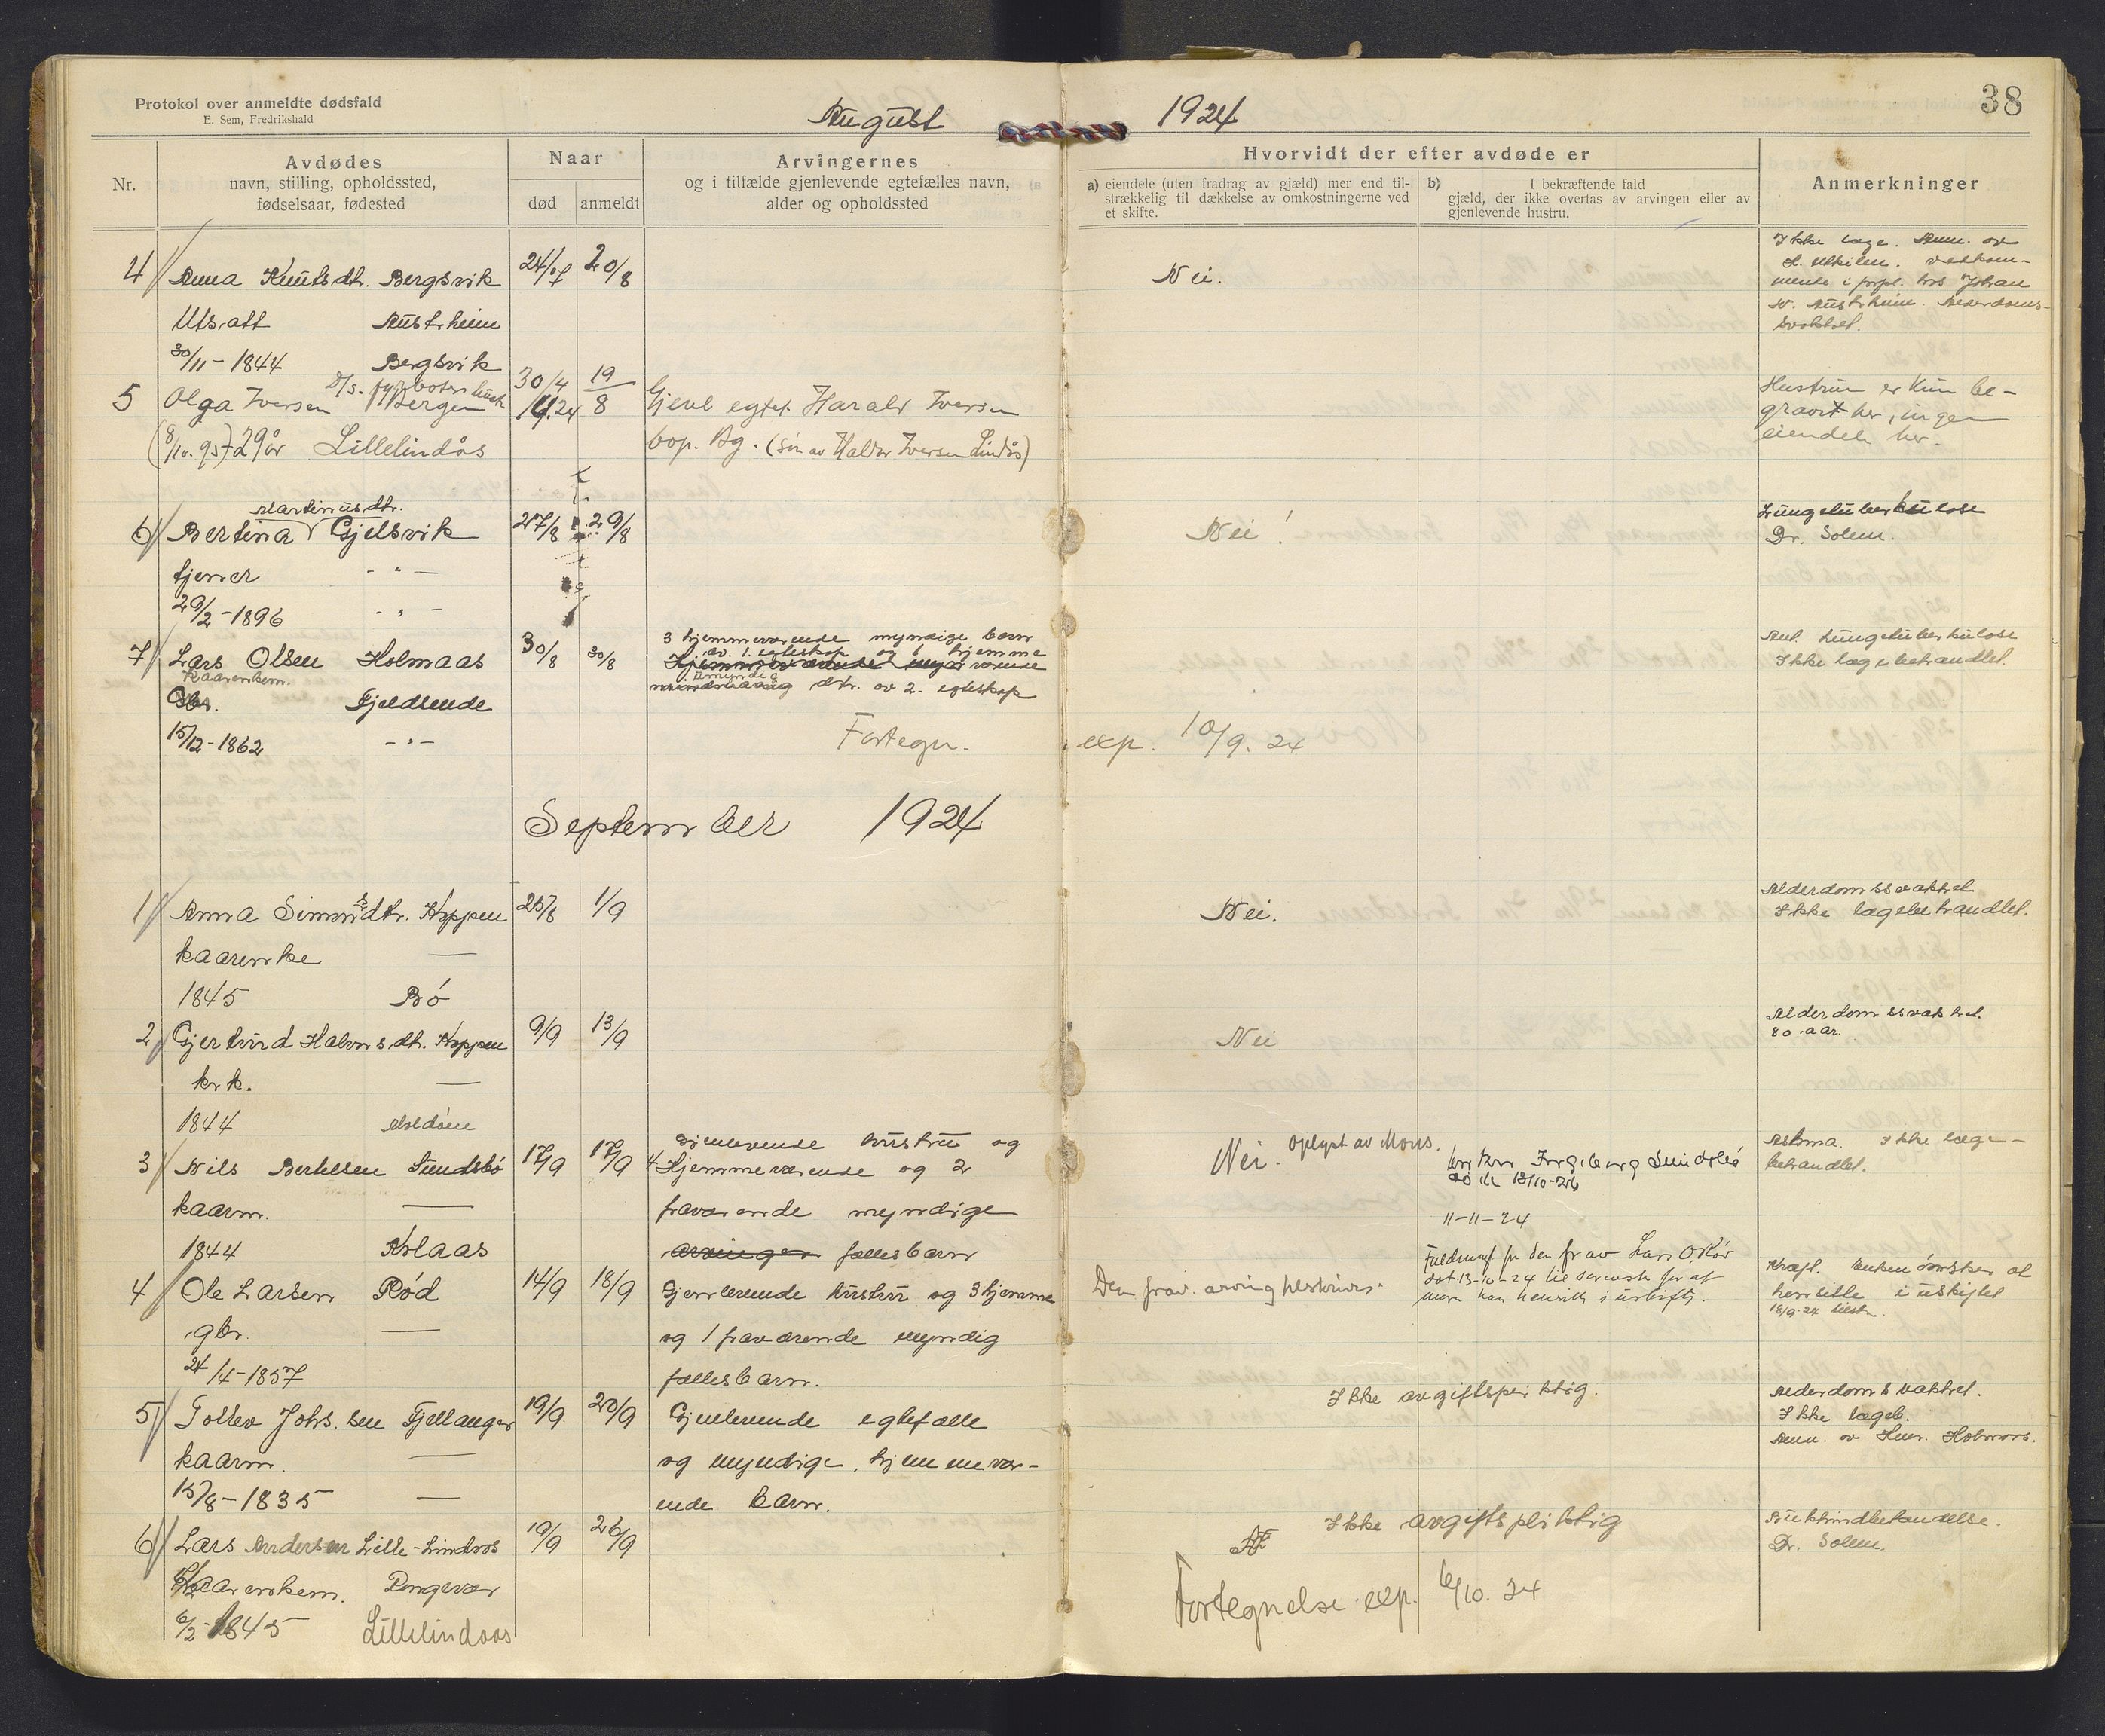 Protokol over anmeldte dødsfald
E. Sem, Fredrikshald
August 1924
38
Nr.
Avdødes
navn, stilling, opholdssted,
fødselsaar, fødested
Naar
død
anmeldt
Arvingernes
og i tilfælde gjenlevende egtefælles navn,
alder og opholdssted
Hvorvidt der efter avdøde er
a) eiendele (uten fradrag av gjæld) mer end til-
strækkelig til dækkelse av omkostningerne ved
et skifte.
b) I bekræftende fald
gjæld, der ikke overtas av arvingen eller av
gjenlevende hustru.
Anmerkninger
4 Anna Knutsdtr. Bergsvik 24/7 20/8 Nei.
Ikke læge. Anm. av
mende i hos Johan
Austrheim. Alderdoms-
svakhet.
Austrheim
30/11-1844 Bergsvik
5 Olga Iversen D/s. fyrbøters hust. Bergen 30/4 19/8
(8/10.95) 29 år Lillelindås
Gjenl egtef. Harald Iversen
bop. Bg. (Søn av Haldor Iversen Lindås)
Hustrun er kun be-
gravet her, ingen
eiendele her.
6 Bertina Martinusdtr. Gjelsvik 27/8 29/8 Nei!
Lungetuberkulose
Dr. Solem.
tjener - " -
29/2-1896 - " -
7 Lars Olsen Holmaas 30/8 30/8
Kaarenkem.
Gbr. Fjeldsende
15/12-1862 - " -
3 hjemmeværende myndige barn
av 1. egteskap og 1 hjemme
værende
umyndig dtr. av 2. egteskap
Fortegn. exp. 10/9. 24
Ant. Lungetuberkulose
Ikke lægebehandlet.
September 1924
1 Anna Simonsdtr. Hoppen 25/8 1/9 Nei.
Alderdomssvakhet
Ikke lægebehandlet.
kaarenke —
1845 Bø
2 Gjertrud Halvorsdtr. Hoppen 9/9 13/9 Nei
Alderdomssvakhet.
80 aar.
krk. —
1844
3 Nils Bertelsen Sundsbø 17/9 17/9
kaarm. —
1844 Kolaas
Gjenlevende hustru og
4 Hjemmeværende og 2
fraværende myndige
arvinger fællesbarn
Nei. Oplyst av Mons.
Ingeborg Sundsbø
13/10-26
11-11-24
Astma. Ikke læge-
behandlet.
4 Ole Larsen Rød 14/9 18/9
gbr. —
24/4-1857
Gjenlevende hustru og 3 hjemme
og 1 fraværende myndig
fællesbarn.
Den frav. arving
Fuldmagt fra den frav Lars O. Rød
dat 13-10-24 til
Kræft. Enken ønsker at
hensitte i uskiftet
18/9-24
5 Tollev Johs.sen Fjellanger 19/9 20/9
kaarm. —
15/8-1835 —
Gjenlevende egtefælle
og myndige, hjemmevær-
ende barn.
Ikke avgiftspliktig.
Alderdomsvakhet.
Ikke lægeb.
Anm. av Holmaas.
6 Lars Andersen Lille-Lindaas 19/9 26/9
Kaarenkem. Ringevær
6/2-1845 Lillelindaas
Ikke avgiftspliktig
Fortegnelse exp. 6/10. 24
Dr. Solem.